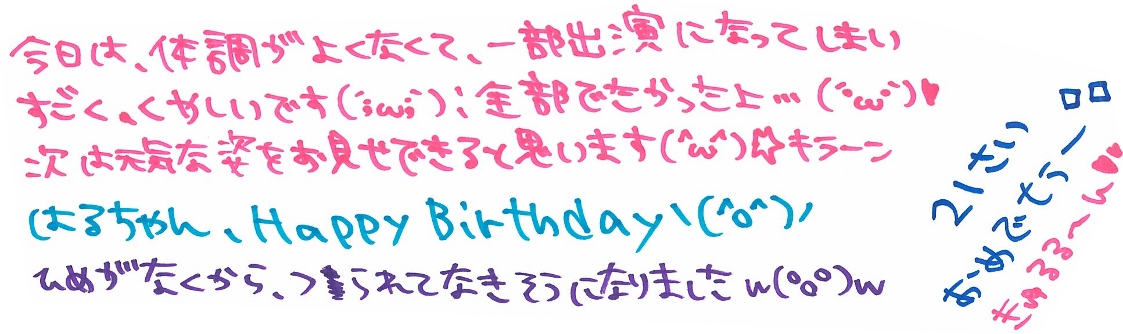 今日は、体調がよくなくて、一部出演になってしまい
すごく、くやしいです(;ω;);全部でたかったよ…(´ω`)♥
次は元気な姿をお見せできると思います(^ω^)☆キラーン
はるちゃん、Happy Birthdayヽ(^o^)ノ
ひめがなくから、つられてなきそうになりましたw(°o°)w
21さい
おめでとうー